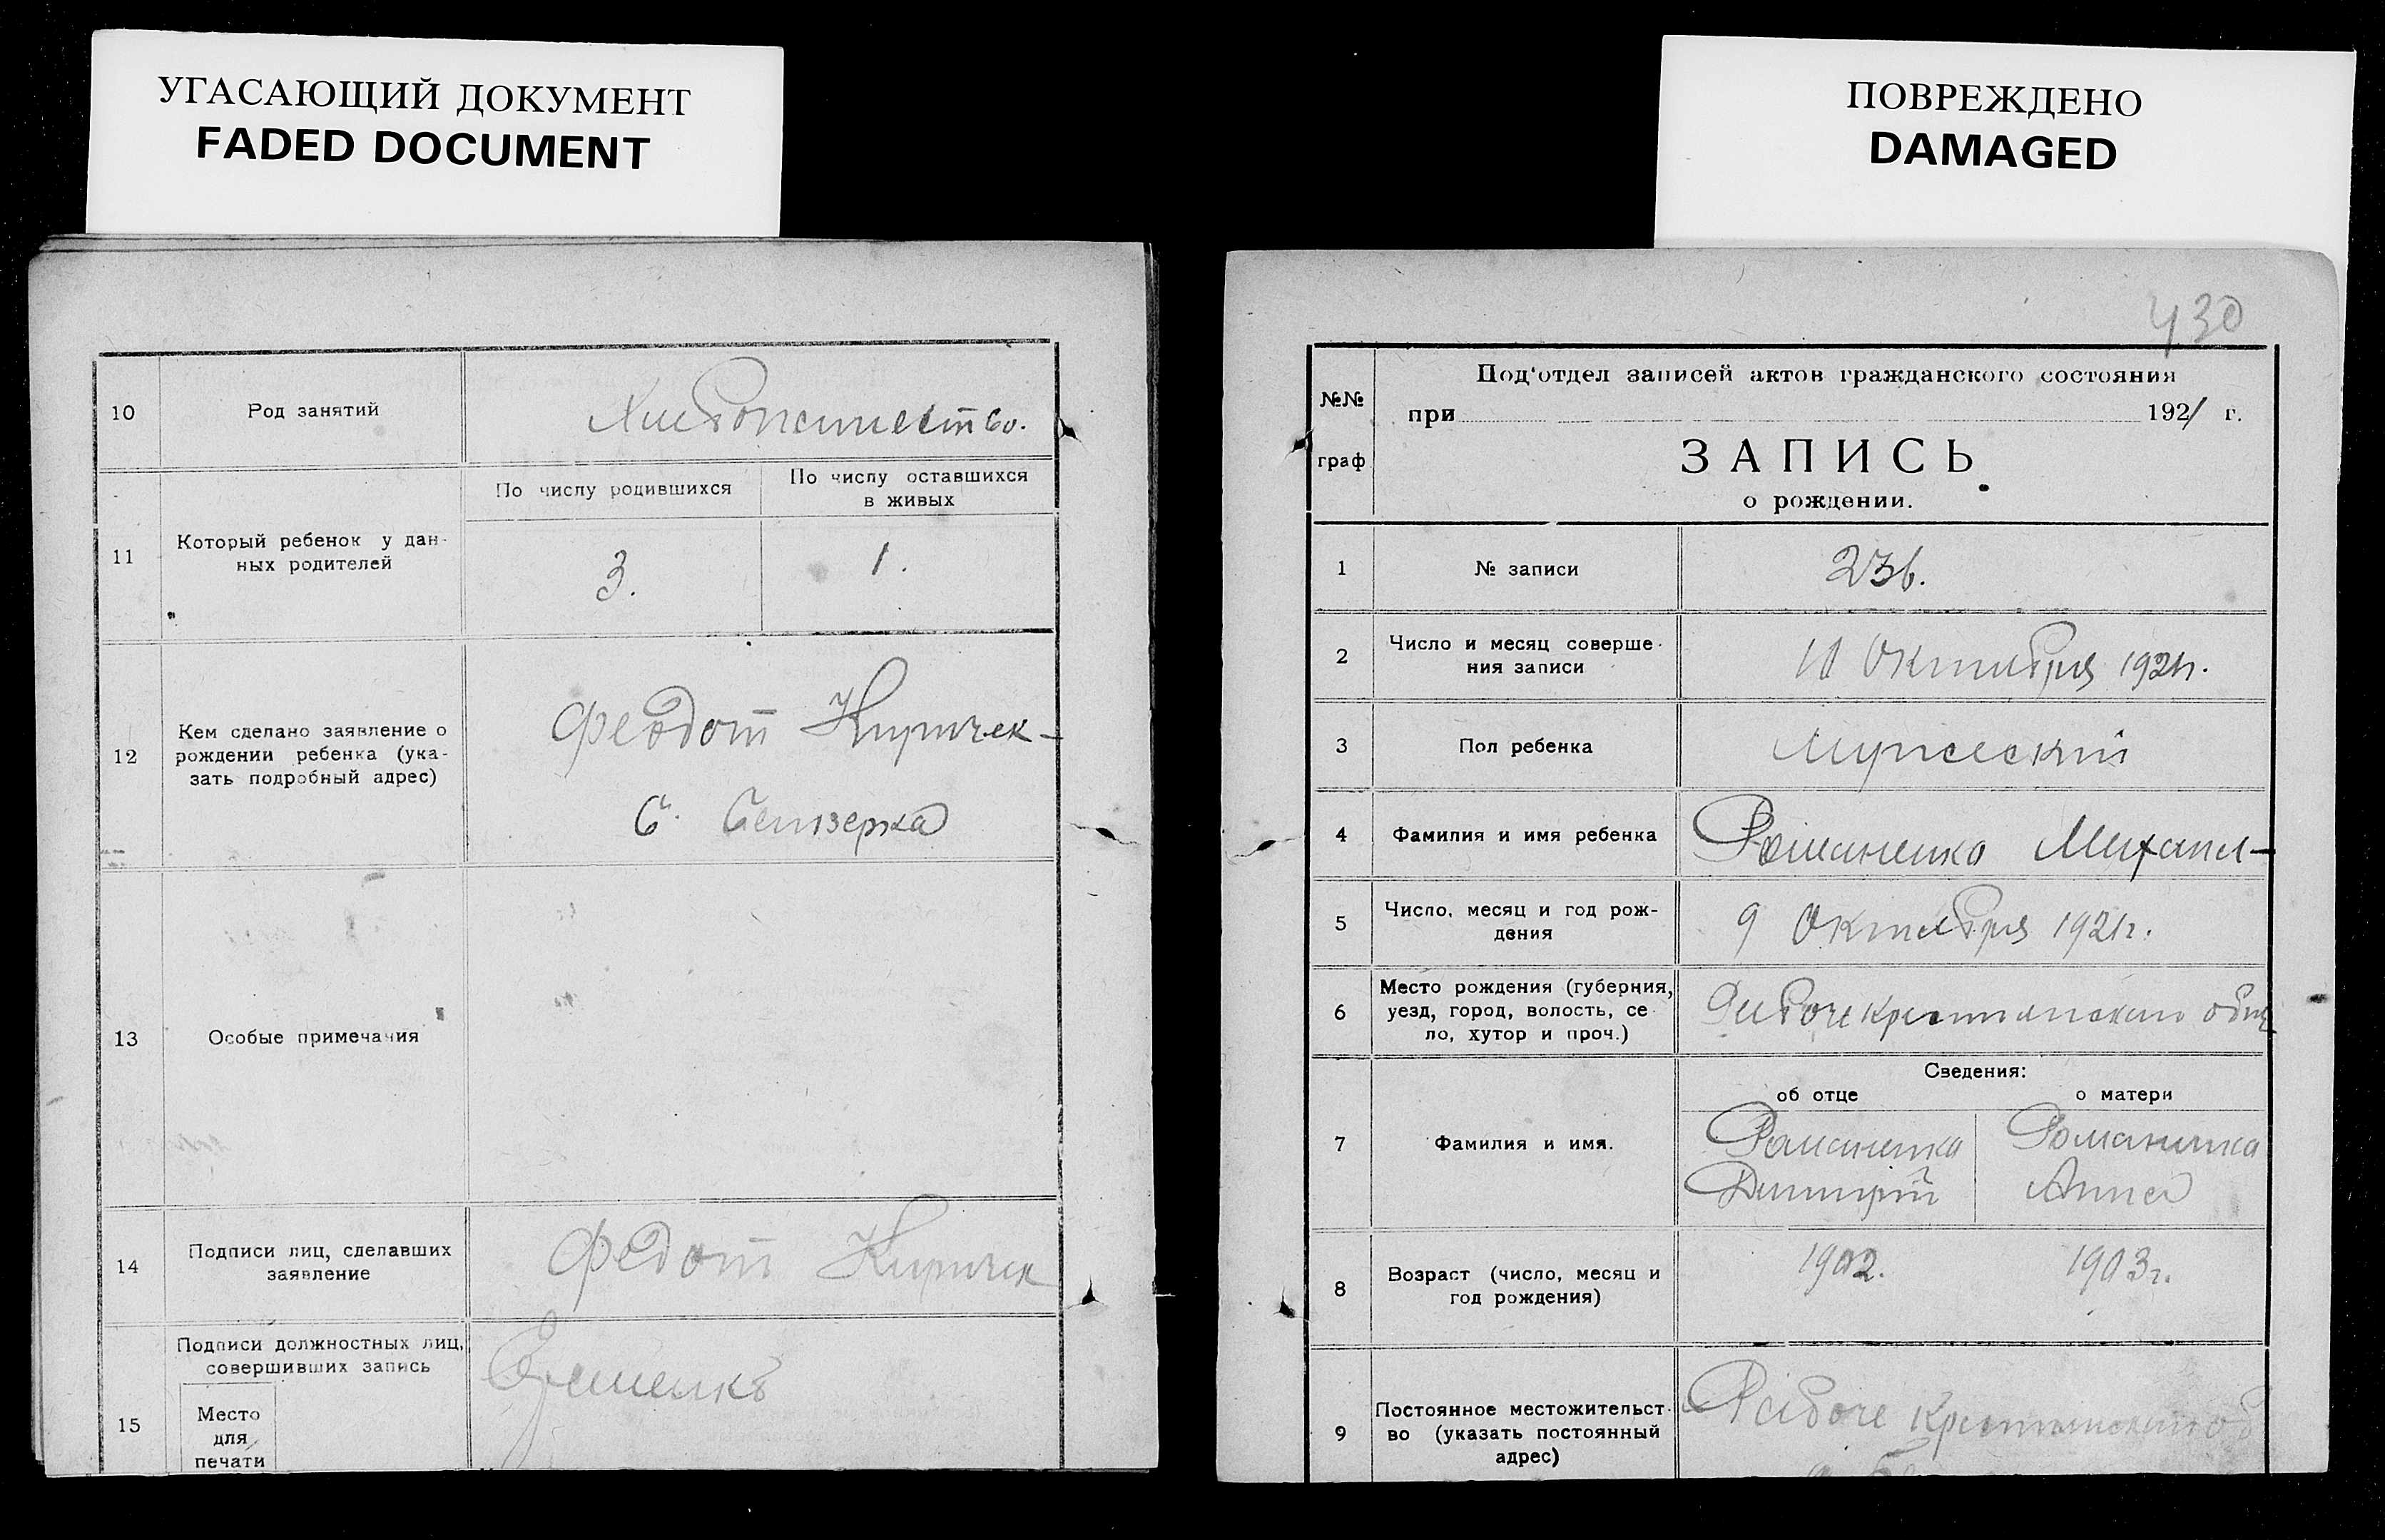 УГАСАЮЩИЙ ДОКУМЕНТ
FADED DOCUMENT
10
Род занятий
Хлебопашество.
11
Который ребенок у дан-
ных родителей
По числу родившихся
По числу оставшихся
в живых
3.
1.
12
Кем сделано заявление о
рождении ребенка (ука-
зать подробный адрес)
Феодот Киричек
С.
13
Особые примечания
14
Подписи лиц, сделавших
заявление
Федот Киричек
15
Подписи должностных лиц,
совершивших запись
Место
для
печати
ПОВРЕЖДЕНО
DAMAGED
430
№№
граф
Под'отдел записей актов гражданского состояния
при 1921 г.
ЗАПИСЬ
о рождении.
1
№ записи
236.
2
Число и месяц соверше-
ния записи
Октября 1921г.
3
Пол ребенка
Мужеский
4
Фамилия и имя ребенка
Романенко Михаил
5
Число, месяц и год рож-
дения
9 Октября 1921г.
6
Место рождения (губерния,
уезд, город, волость, се-
ло, хутор и проч.)
Сведения:
об отце
о матери
7
Фамилия и имя.
Романенко
Димитрий
Романенко
Анна
8
Возраст (число, месяц и
год рождения)
1902.
1903г.
9
Постоянное местожительст-
во (указать постоянный
адрес)
Рабоче